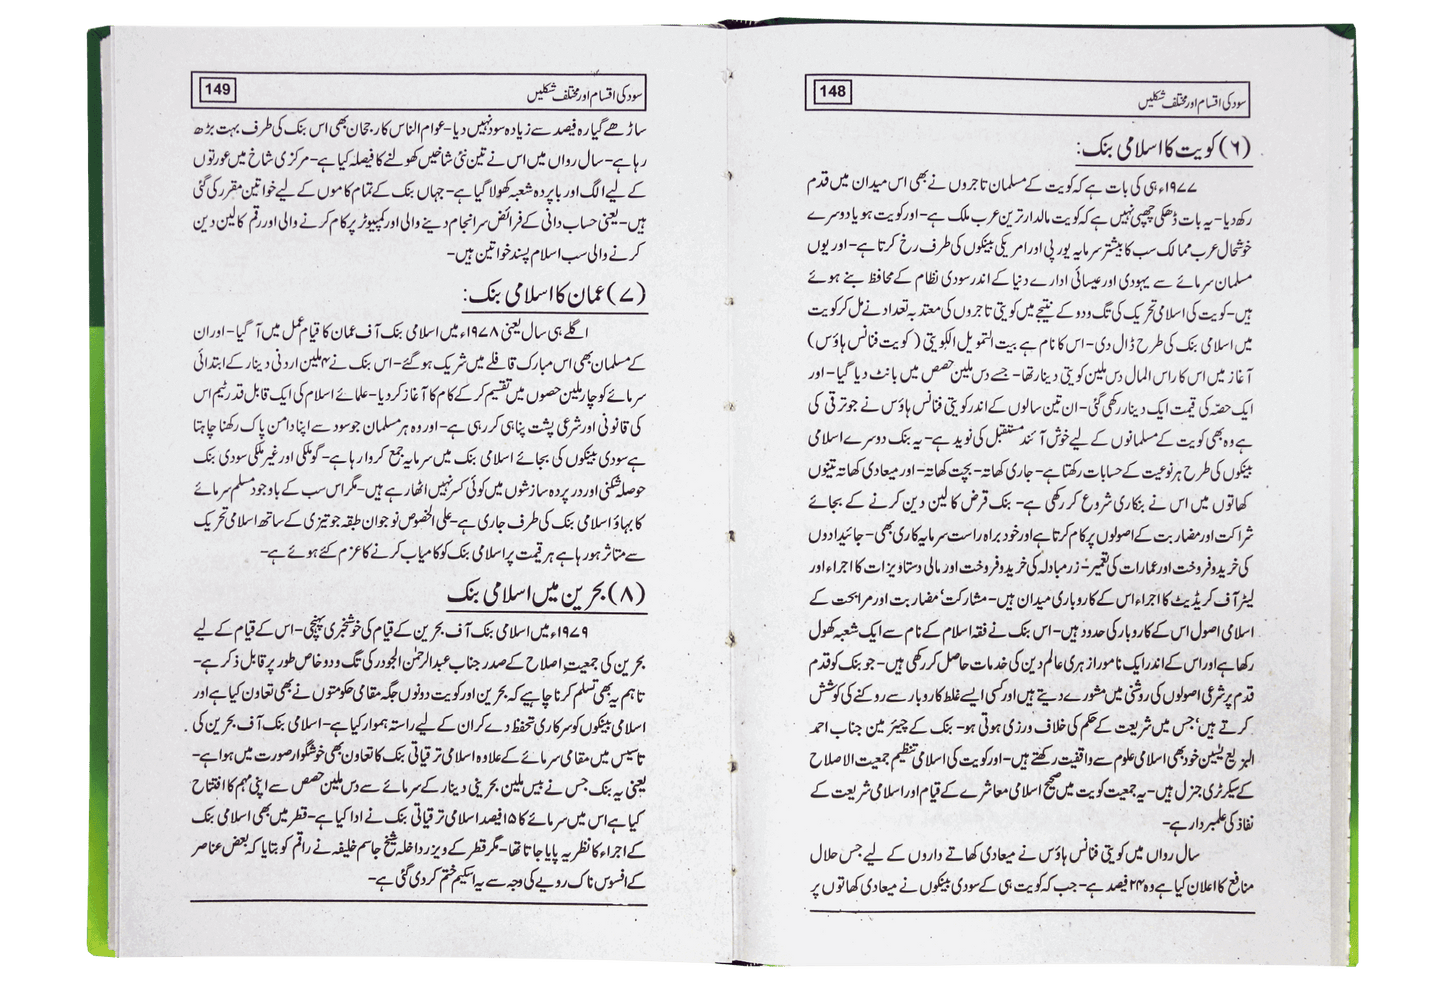 سود کی اقسام اور مختلف شکلیں 148
(۶) کویت کا اسلامی بنک:
۱۹۷۷ء ہی کی بات ہے کہ کویت کے مسلمان تاجروں نے بھی اس میدان میں قدم
رکھ دیا- یہ بات ڈھکی چھپی نہیں ہے کہ کویت مالدار ترین عرب ملک ہے- اور کویت ہو یا دوسرے
خوشحال عرب ممالک سب کا بیشتر سرمایہ یورپی اور امریکی بینکوں کی طرف رخ کرتا ہے- اور یوں
مسلمان سرمائے سے یہودی اور عیسائی ادارے دنیا کے اندر سودی نظام کے محافظ بنے ہوئے
ہیں- کویت کی اسلامی تحریک کی تگ و دو کے نتیجے میں کویتی تاجروں کی معتدبہ تعداد نے مل کر کویت
میں اسلامی بنک کی طرح ڈال دی- اس کا نام ہے بیت التمویل الکویتی (کویت فنانس ہاؤس)
آغاز میں اس کا راس المال دس ملین کویتی دینار تھا- جسے دس ملین حصص میں بانٹ دیا گیا- اور
ایک حصّہ کی قیمت ایک دینار رکھی گئی- ان تین سالوں کے اندر کویتی فنانس ہاؤس نے جو ترقی کی
ہے وہ بھی کویت کے مسلمانوں کے لیے خوش آئند مستقبل کی نوید ہے- یہ بنک دوسرے اسلامی
بینکوں کی طرح ہر نوعیت کے حسابات رکھتا ہے- جاری کھاتہ- بچت کھاتہ- اور میعادی کھاتہ تینوں
کھاتوں میں اس نے بنکاری شروع کر رکھی ہے- بنک قرض کا لین دین کرنے کے بجائے
شراکت اور مضاربت کے اصولوں پر کام کرتا ہے اور خود براہ راست سرمایہ کاری بھی- جائیدادوں
کی خرید و فروخت اور عمارات کی تعمیر- زر مبادلہ کی خرید و فروخت اور مالی دستاویزات کا اجراء اور
لیٹر آف کریڈیٹ کا اجراء اس کے کاروباری میدان ہیں- مشارکت‘ مضاربت اور مرابحت کے
اسلامی اصول اس کے کاروبار کی حدود ہیں- اس بنک نے فقہ اسلام کے نام سے ایک شعبہ کھول
رکھا ہے اور اس کے اندر ایک نامور ازہری عالم دین کی خدمات حاصل کر رکھی ہیں- جو بنک کو قدم
قدم پر شرعی اصولوں کی روشنی میں مشورے دیتے ہیں اور کسی ایسے غلط کاروبار سے روکنے کی کوشش
کرتے ہیں‘ جس میں شریعت کے حکم کی خلاف ورزی ہوتی ہو- بنک کے چیئرمین جناب احمد
البزیع یٰسین خود بھی اسلامی علوم سے واقفیت رکھتے ہیں- اور کویت کی اسلامی تنظیم جمعیت الاصلاح
کے سیکرٹری جنرل ہیں- یہ جمعیت کویت میں صحیح اسلامی معاشرے کے قیام اور اسلامی شریعت کے
نفاذ کی علمبردار ہے-
سال رواں میں کویتی فنانس ہاؤس نے میعادی کھاتے داروں کے لیے جس حلال
منافع کا اعلان کیا ہے وہ ۲۴ فیصد ہے- جب کہ کویت ہی کے سودی بینکوں نے میعادی کھاتوں پر
سود کی اقسام اور مختلف شکلیں 149
ساڑھے گیارہ فیصد سے زیادہ سود نہیں دیا- عوام الناس کا رجحان بھی اس بنک کی طرف بہت بڑھ
رہا ہے- سال رواں میں اس نے تین نئی شاخیں کھولنے کا فیصلہ کیا ہے- مرکزی شاخ میں عورتوں
کے لیے الگ اور با پردہ شعبہ کھولا گیا ہے- جہاں بنک کے تمام کاموں کے لیے خواتین مقرر کی گئی
ہیں- یعنی حساب دانی کے فرائض سر انجام دینے والی اور کمپیوٹر پر کام کرنے والی اور رقم کا لین دین
کرنے والی سب اسلام پسند خواتین ہیں-
(۷) عمان کا اسلامی بنک:
اگلے ہی سال یعنی ۱۹۷۸ء میں اسلامی بنک آف عمان کا قیام عمل میں آ گیا- اور ان
کے مسلمان بھی اس مبارک قافلے میں شریک ہو گئے- اس بنک نے ۴ ملین اردنی دینار کے ابتدائی
سرمائے کو چار ملین حصوں میں تقسیم کر کے کام کا آغاز کر دیا- علمائے اسلام کی ایک قابل قدر ٹیم اس
کی قانونی اور شرعی پشت پناہی کر رہی ہے- اور وہ ہر مسلمان جو سود سے اپنا دامن پاک رکھنا چاہتا
ہے سودی بینکوں کی بجائے اسلامی بنک میں سرمایہ جمع کروا رہا ہے- گو ملکی اور غیر ملکی سودی بنک
حوصلہ شکنی اور در پردہ سازشوں میں کوئی کسر نہیں اٹھا رہے ہیں- مگر اس سب کے باوجود مسلم سرمائے
کا بہاؤ اسلامی بنک کی طرف جاری ہے- علی الخصوص نوجوان طبقہ جو تیزی کے ساتھ اسلامی تحریک
سے متاثر ہو رہا ہے ہر قیمت پر اسلامی بنک کو کامیاب کرنے کا عزم کئے ہوئے ہے-
(۸) بحرین میں اسلامی بنک
۱۹۷۹ء میں اسلامی بنک آف بحرین کے قیام کی خوشخبری پہنچی- اس کے قیام کے لیے
بحرین کی جمعیت اصلاح کے صدر جناب عبدالرحمٰن الجودر کی تگ و دو خاص طور پر قابل ذکر ہے-
تاہم یہ بھی تسلیم کرنا چاہیے کہ بحرین اور کویت دونوں جگہ مقامی حکومتوں نے بھی تعاون کیا ہے اور
اسلامی بینکوں کو سرکاری تحفظ دے کر ان کے لیے راستہ ہموار کیا ہے- اسلامی بنک آف بحرین کی
تاسیس میں مقامی سرمائے کے علاوہ اسلامی ترقیاتی بنک کا تعاون بھی خوشگوار صورت میں ہوا ہے-
یعنی یہ بنک جس نے بیس ملین بحرینی دینار کے سرمائے سے دس ملین حصص سے اپنی مہم کا افتتاح
کیا ہے اس میں سرمائے کا ۱۵ فیصد اسلامی ترقیاتی بنک نے ادا کیا ہے- قطر میں بھی اسلامی بنک
کے اجراء کا نظریہ پایا جاتا تھا- مگر قطر کے وزیر داخلہ شیخ جاسم خلیفہ نے راقم کو بتایا کہ بعض عناصر
کے افسوس ناک رویے کی وجہ سے یہ اسکیم ختم کر دی گئی ہے-